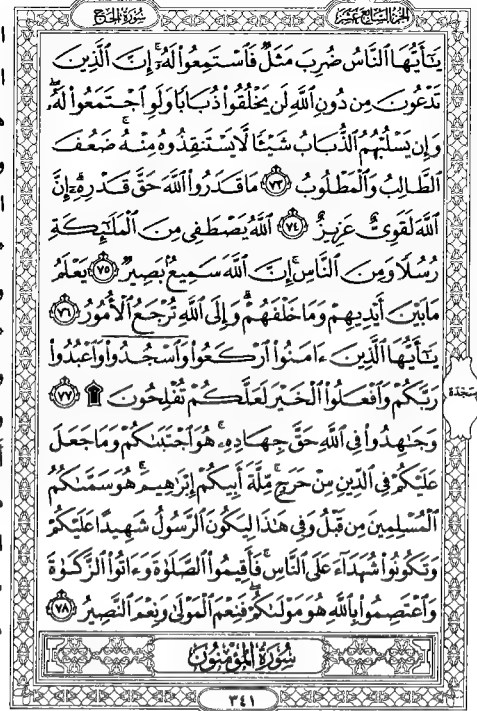 سورة الحج الجزء السابع عشر
يَٰٓأَيُّهَا ٱلنَّاسُ ضُرِبَ مَثَلٌ فَٱسْتَمِعُوا۟ لَهُۥٓ ۚ إِنَّ ٱلَّذِينَ
تَدْعُونَ مِن دُونِ ٱللَّهِ لَن يَخْلُقُوا۟ ذُبَابًا وَلَوِ ٱجْتَمَعُوا۟ لَهُۥ ۖ
وَإِن يَسْلُبْهُمُ ٱلذُّبَابُ شَيْـًٔا لَّا يَسْتَنقِذُوهُ مِنْهُ ۚ ضَعُفَ
ٱلطَّالِبُ وَٱلْمَطْلُوبُ ٧٣ مَا قَدَرُوا۟ ٱللَّهَ حَقَّ قَدْرِهِۦٓ ۗ إِنَّ
ٱللَّهَ لَقَوِىٌّ عَزِيزٌ ٧٤ ٱللَّهُ يَصْطَفِى مِنَ ٱلْمَلَٰٓئِكَةِ
رُسُلًا وَمِنَ ٱلنَّاسِ ۚ إِنَّ ٱللَّهَ سَمِيعٌۢ بَصِيرٌ ٧٥ يَعْلَمُ
مَا بَيْنَ أَيْدِيهِمْ وَمَا خَلْفَهُمْ ۗ وَإِلَى ٱللَّهِ تُرْجَعُ ٱلْأُمُورُ ٧٦
يَٰٓأَيُّهَا ٱلَّذِينَ ءَامَنُوا۟ ٱرْكَعُوا۟ وَٱسْجُدُوا۟ وَٱعْبُدُوا۟
رَبَّكُمْ وَٱفْعَلُوا۟ ٱلْخَيْرَ لَعَلَّكُمْ تُفْلِحُونَ ۩ ٧٧
سجدة
وَجَٰهِدُوا۟ فِى ٱللَّهِ حَقَّ جِهَادِهِۦ ۚ هُوَ ٱجْتَبَىٰكُمْ وَمَا جَعَلَ
عَلَيْكُمْ فِى ٱلدِّينِ مِنْ حَرَجٍ ۚ مِّلَّةَ أَبِيكُمْ إِبْرَٰهِيمَ ۚ هُوَ سَمَّىٰكُمُ
ٱلْمُسْلِمِينَ مِن قَبْلُ وَفِى هَٰذَا لِيَكُونَ ٱلرَّسُولُ شَهِيدًا عَلَيْكُمْ
وَتَكُونُوا۟ شُهَدَآءَ عَلَى ٱلنَّاسِ ۚ فَأَقِيمُوا۟ ٱلصَّلَوٰةَ وَءَاتُوا۟ ٱلزَّكَوٰةَ
وَٱعْتَصِمُوا۟ بِٱللَّهِ هُوَ مَوْلَىٰكُمْ ۖ فَنِعْمَ ٱلْمَوْلَىٰ وَنِعْمَ ٱلنَّصِيرُ ٧٨
سورة المؤمنون
٣٤١